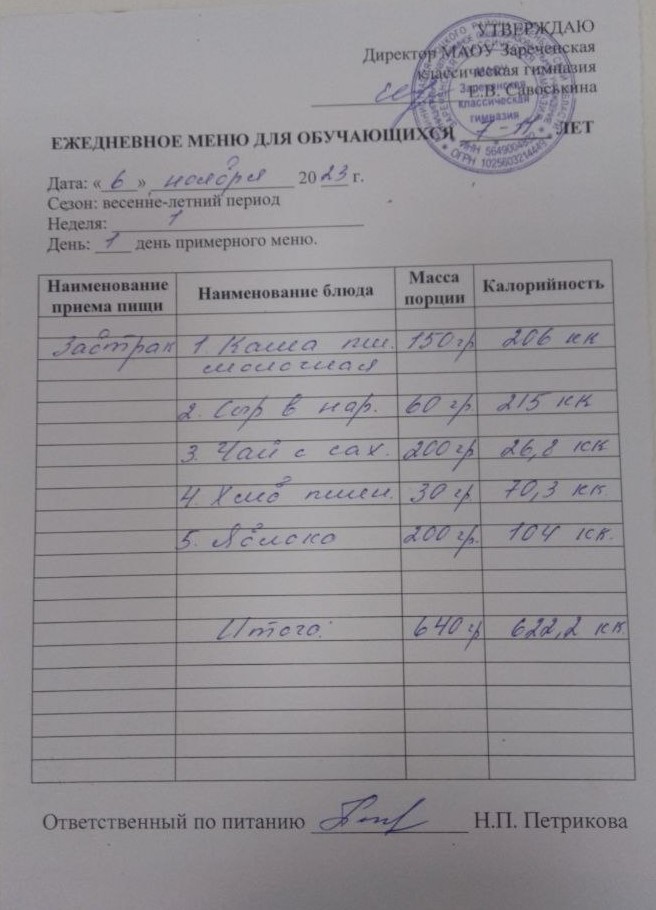 УТВЕРЖДАЮ
Директор МАОУ Зареченская
классическая гимназия
Е.В. Савоськина
МАОУ
Зареченская
классическая
гимназия
ИНН 5649004872 * ОГРН 1025603214449
ЕЖЕДНЕВНОЕ МЕНЮ ДЛЯ ОБУЧАЮЩИХСЯ 7 - 11 ЛЕТ
Дата: «6» ноября 2023 г.
Сезон: весенне-летний период
Неделя: 1
День: 1 день примерного меню.
Наименование приема пищи Наименование блюда Масса порции Калорийность
Завтрак 1. Каша пш. 150 гр 206 кк
молочная
2. Сыр в нар. 60 гр. 215 кк
3. Чай с сах. 200 гр 26,8 кк
4. Хлеб пшен. 30 гр 70,3 кк.
5. Яблоко 200 гр. 104 кк.
Итого: 640 гр 622,2 кк
Ответственный по питанию Н.П. Петрикова